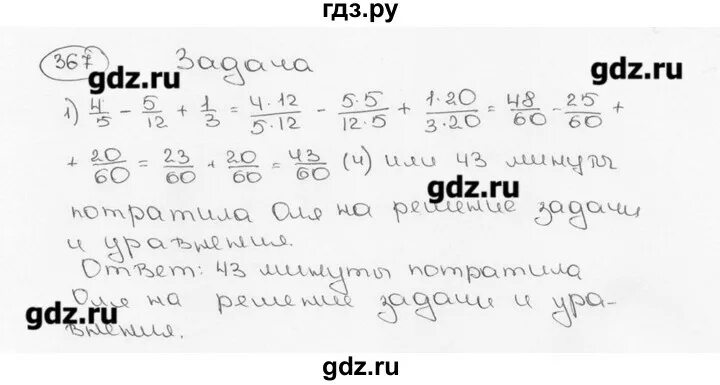 гдз.ру
367 Задача
gdz.ru gdz.ru
1) 4/5 - 5/12 + 1/3 = 4·12/5·12 - 5·5/12·5 + 1·20/3·20 = 48/60 - 25/60 +
+ 20/60 = 23/60 + 20/60 = 43/60 (ч) или 43 минуты
gdz.ru
потратила Оля на решение задачи
и уравнения.
Ответ: 43 минуты потратила
Оля на решение задачи и ура-
gdz.ru
внения.
gdz.ru